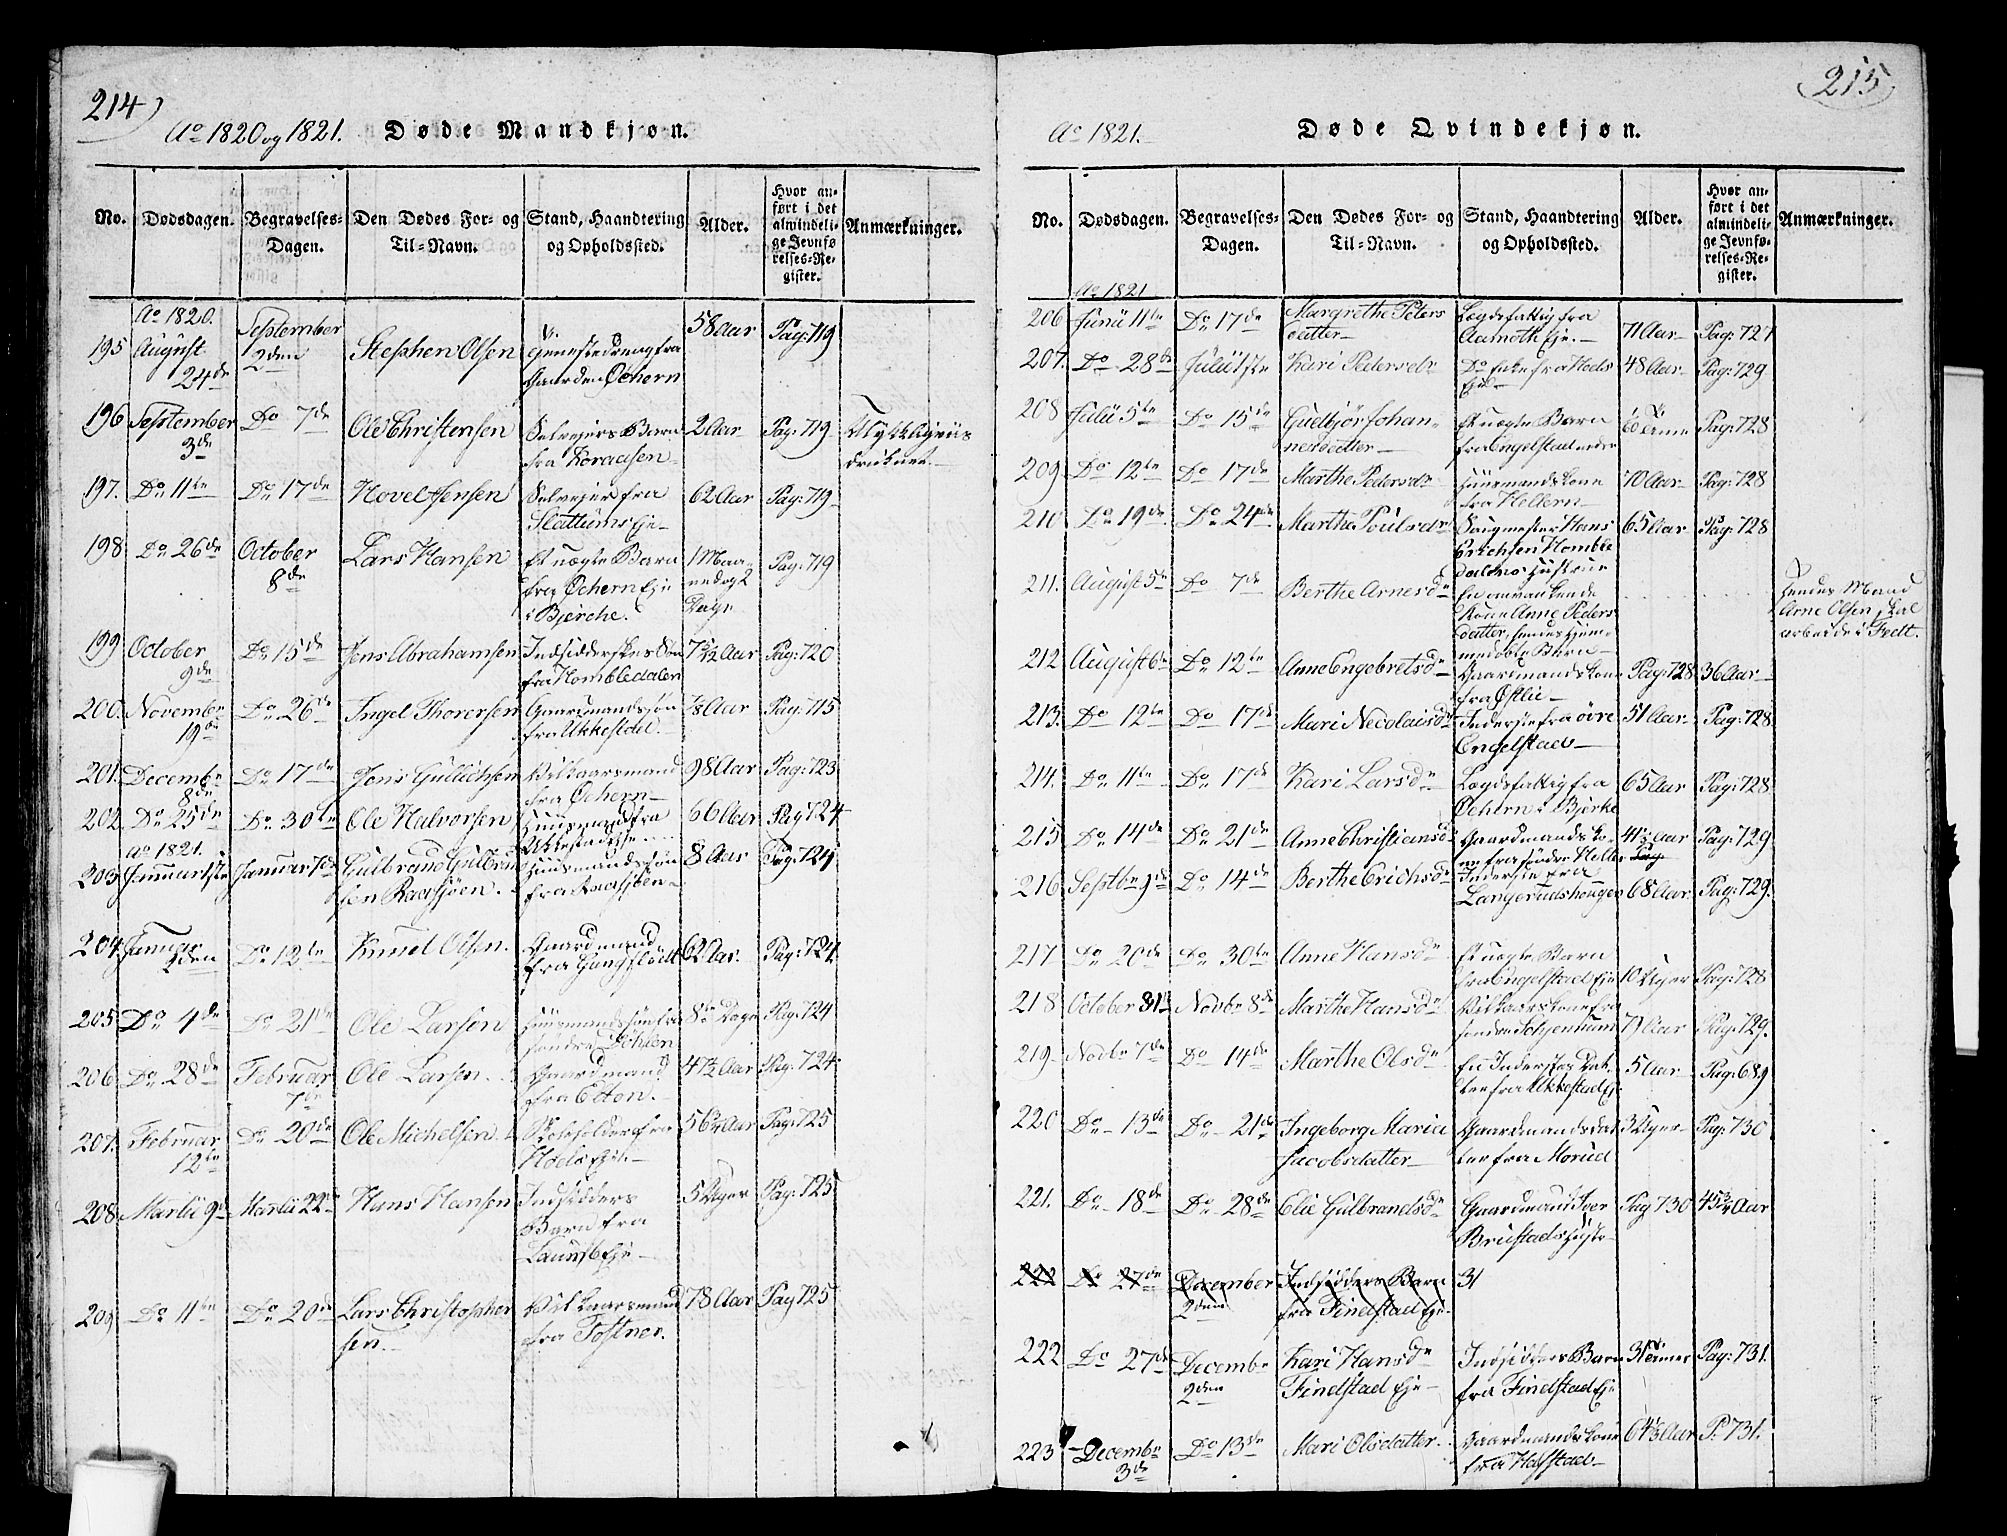 214)
Ao 1820 og 1821. Døde Mandkjøn.
No. Dødsdagen. Begravelses-Dagen. Den Dødes For- og Til-Navn. Stand, Haandtering og Opholdssted. Alder. Hvor anført i det almindelige Jevnførelses-Register. Anmærkninger.
Ao 1820.
195 August 24de September 2den Stephen Olsen fra Gaarden Ochern 58 Aar Pag: 719
196 September 3de Do 7de Ole Christensen Selvejers Barn fra Koraasen 2 Aar Pag: 719
197. Do 11te Do 17de Hovel Jensen Selvejer fra Slattums Eje 62 Aar Pag: 719
198 Do 26de October 8de Lars Hansen Et uægte Barn fra Ochern Eje i Bjerche. 1 Maaned og 2 Dage Pag: 719
199 October 9de Do 15de Jens Abrahamsen Indsidderskes Søn fra Hombledalen 7½ Aar Pag: 720
200. Novembr 19de Do 26de Ingel Thoresen Gaardmandssøn fra Ukkestad. Aar Pag: 715
201. Decembr 8de Do 17de Jens Gullichsen Vilkaarsmand fra Ochern 98 Aar Pag: 723
202. Do 25de Do 30te Ole Halvorsen Huusmand fra Ukkestadeje 66 Aar Pag 724
Ao 1821.
203 Januar 1ste Januar 7de Gulbrand Gulbrandsen Raasjøen. Huusmandssøn fra Raasjøen 8 Aar Pag: 724
204. Januar 2den Do 12te Knud Olsen. Gaardmand fra 62 Aar. Pag: 724
205. Do 4de Do 21de Ole Larsen Huusmandssøn fra søndre Døhlen 8te Dage Pag: 724
206. Do 28de Februar 7de Ole Larsen. Gaardmand fra Elton. 47½ Aar Pag: 724
207. Februar 12te Do 20de Ole Michelsen. Skoleholder fra Hœls Eje. 56¼ Aar Pag: 725
208. Martii 9de Martii 22de Hans Hansen Indsidders Barn fra Eje 5 Uger Pag: 725
209 Do 11te Do 20de Lars Christophersen. Vilkaarsmand fra Tostner. 78 Aar Pag 725
215
Ao 1821. Døde Qvindekjøn.
No. Dødsdagen. Begravelses-Dagen. Den Dødes For- og Til-Navn. Stand, Haandtering og Opholdssted. Alder. Hvor anført i det almindelige Jevnførelses-Register. Anmærkninger.
Ao 1821
206 Junii 11te Do 17de Margrethe Petersdatter Legdsfattig fra Aamoth Eje. 71 Aar Pag: 727
207. Do 28de Julii 1ste Kari Pedersdr Do Enke fra Hœls Eje 48 Aar Pag: 729
208 Julii 5te Do 15de Gudbjør Johannesdatter Et uægte Barn fra Engelstad Pag: 728
209 Do 12te Do 17de Marthe Pedersdr Huusmandskone fra Hellern 70 Aar Pag: 728
210 Do 19de. Do 24de Marthe Poulsdr Saugmester Hans Erichsen Hombledalens Hustrue 65 Aar Pag: 728
211. August 5te Do 7de Berthe Arnesdr En omvankende Kone Anne Pedersdatter, hendes hjemmedøbte Barn Hendes Mand Arne Olsen skal arbeide i Fedt.
212 August 6te Do 12te Anne Engebretsdr Gaardmandskone fra Østlie Pag: 728 36 Aar
213. Do 12te Do 17de Mari Necolaisdr Inderste fra øvre Engelstad 51 Aar Pag: 728
214. Do 11te Do 17de Kari Larsdr Legdsfattig fra Ochern i Bjerke 65 Aar Pag: 728
215 Do 14de Do 21de Anne Christiansdr Gaardmandskone fra søndre Heller 41½ Aar Pag: 729
216 Septbr 9de Do 14de Berthe Erichsdr Inderste fra Langerudshougen 68 Aar Pag: 729.
217 Do 20de Do 30te Anne Hansdr Et uægte Barn fra Engelstad Eje 10 Uger Pag: 728
218 October 31te Novbr 8de Marthe Hansdr Vilkaarskone fra søndre 71 Aar Pag: 729.
219 Novbr 7de Do 14de Marthe Olsdr En Inderstes Datter fra Ukkestad Ej 5 Aar Pag: 689
220 Do 13de Do 21de Ingeborg Maria Jacobsdatter Gaardmandsdatter fra Morud 3 Uger Pag: 730
221. Do 18de Do 28de Elie Gulbrandsdr Gaardmand Iver Brustads Hustr. Pag 730 45¾ Aar
222 Do 27de December 2den Indsidders Barn fra Findstad Eje. 31
222 Do 27de Decembr 2den Kari Hansdr Findstad Eje Indsidders Barn fra Findstad Eje Pag: 731.
223 Decembr 3de Do 13de Mari Olsdatter. Gaardmandskone fra Halstad 64½ Aar P. 731.